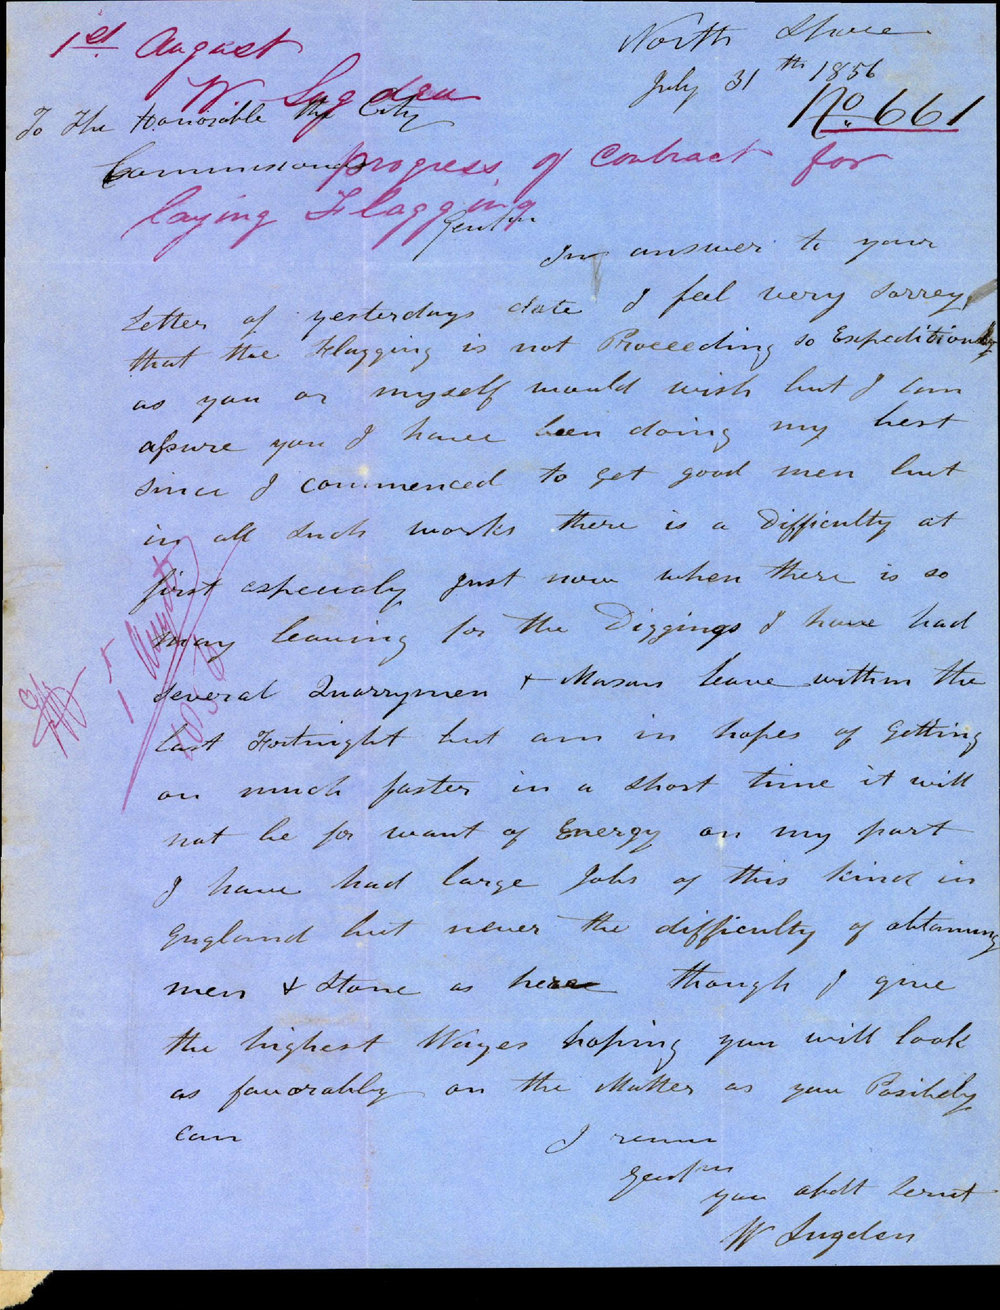 North Shore
July 31th 1856
No 661
1st August
W Sugden
To The Honorable the City
Commissioners
progress of contract for
laying Flagging
Gentmn
In answer to your
Letter of yesterdays date I feel very sorrey
that the Flagging is not Proceeding so Expeditionsly
as you or myself would wish but I can
assure you I have been doing my best
since I commenced to get good men but
in all such works there is a Difficulty at
first aspecialy just now when there is so
many leaving for the Diggings I have had
several Quarrymen & Masons leave within the
last Fortnight but am in hopes of Getting
on much faster in a short time it will
not be for want of Energy on my part
I have had large Jobs of this kind in
England but never the difficulty of obtaining
men & Stone as here though I give
the highest Wages hoping you will look
as favorably on the Matter as you Posibely
can
I remn
Gentmn
your obdt Servt
W Sugden